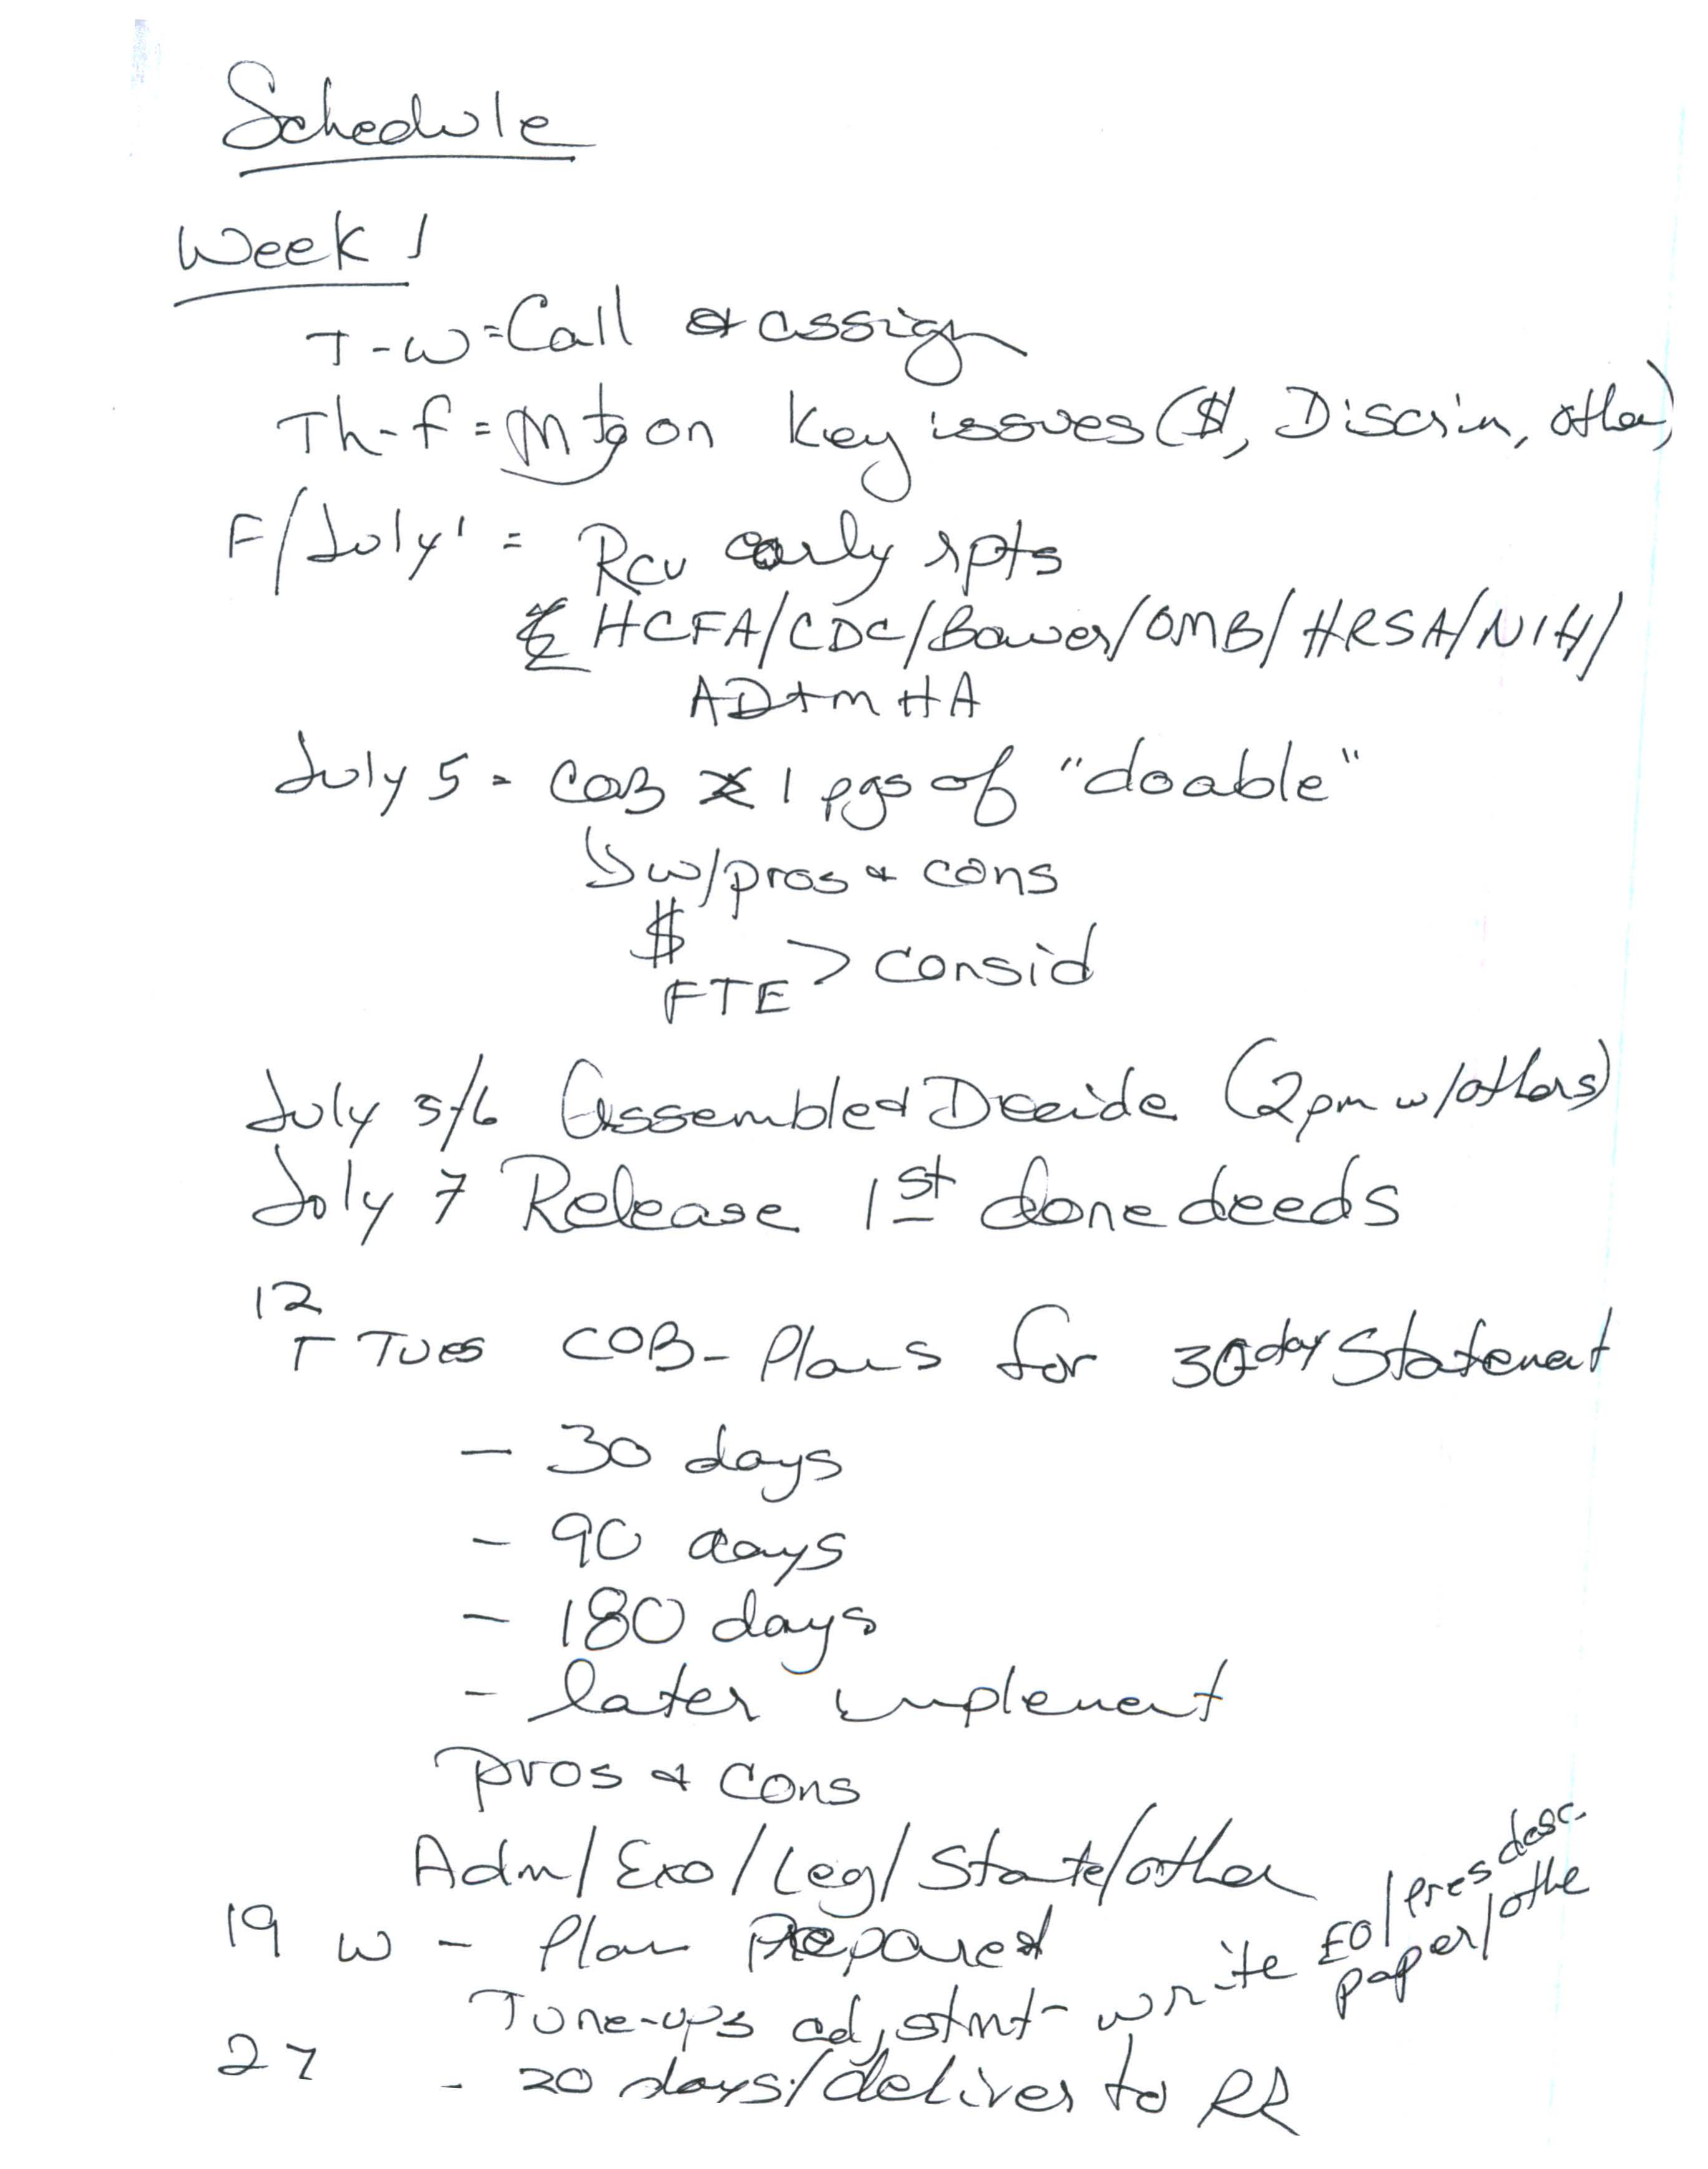 Schedule
Week 1
T-W = Call & assign
Th-F = Mtg on key issues ($, Discrim, other)
F/July 1 = Rcv early rpts
HCFA/CDC/Bowen/OMB/HRSA/NIH/
ADAMHA
July 5 = COB 1 pgs of "doable"
w/pros & cons
$
FTE > consid
July 5/6 Assembled Decide (2pm w/others)
July 7 Release 1st done deeds
12
T TUES COB - Plans for 30 day Statement
- 30 days
- 90 days
- 180 days
- later implement
pros & cons
Adm/Exo/Leg/State/other
19 W - Plan Prepared
Tune-ups adjstmt - write EO/pres desc. paper/othe
27 - 20 days/deliver to RR